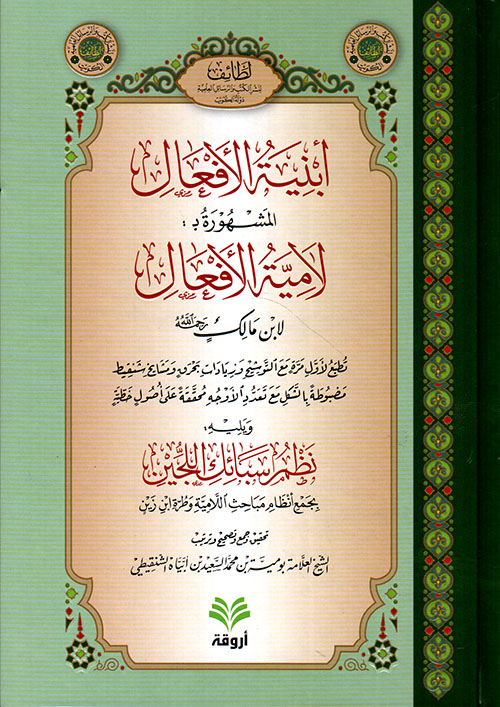 لطائف
لنشر الكتب والرسائل العلمية
دولة الكويت
أبنية الأفعال
المشهورة بـ:
لامية الأفعال
لابن مالك رحمه الله
تطبع لأول مرة مع التوشيح وزيادات بحرق ومشايخ شنقيط
مضبوطة بالشكل مع تعدد الأوجه محققة على أصول خطية
ويليه:
نظم سبائك اللجين
بجمع أنظام مباحث اللامية وطرة ابن زين
تحقيق جمع وتصحيح وترتيب
الشيخ العلامة بومية بن محمد السعيد بن ابياه الشنقيطي
أروقة